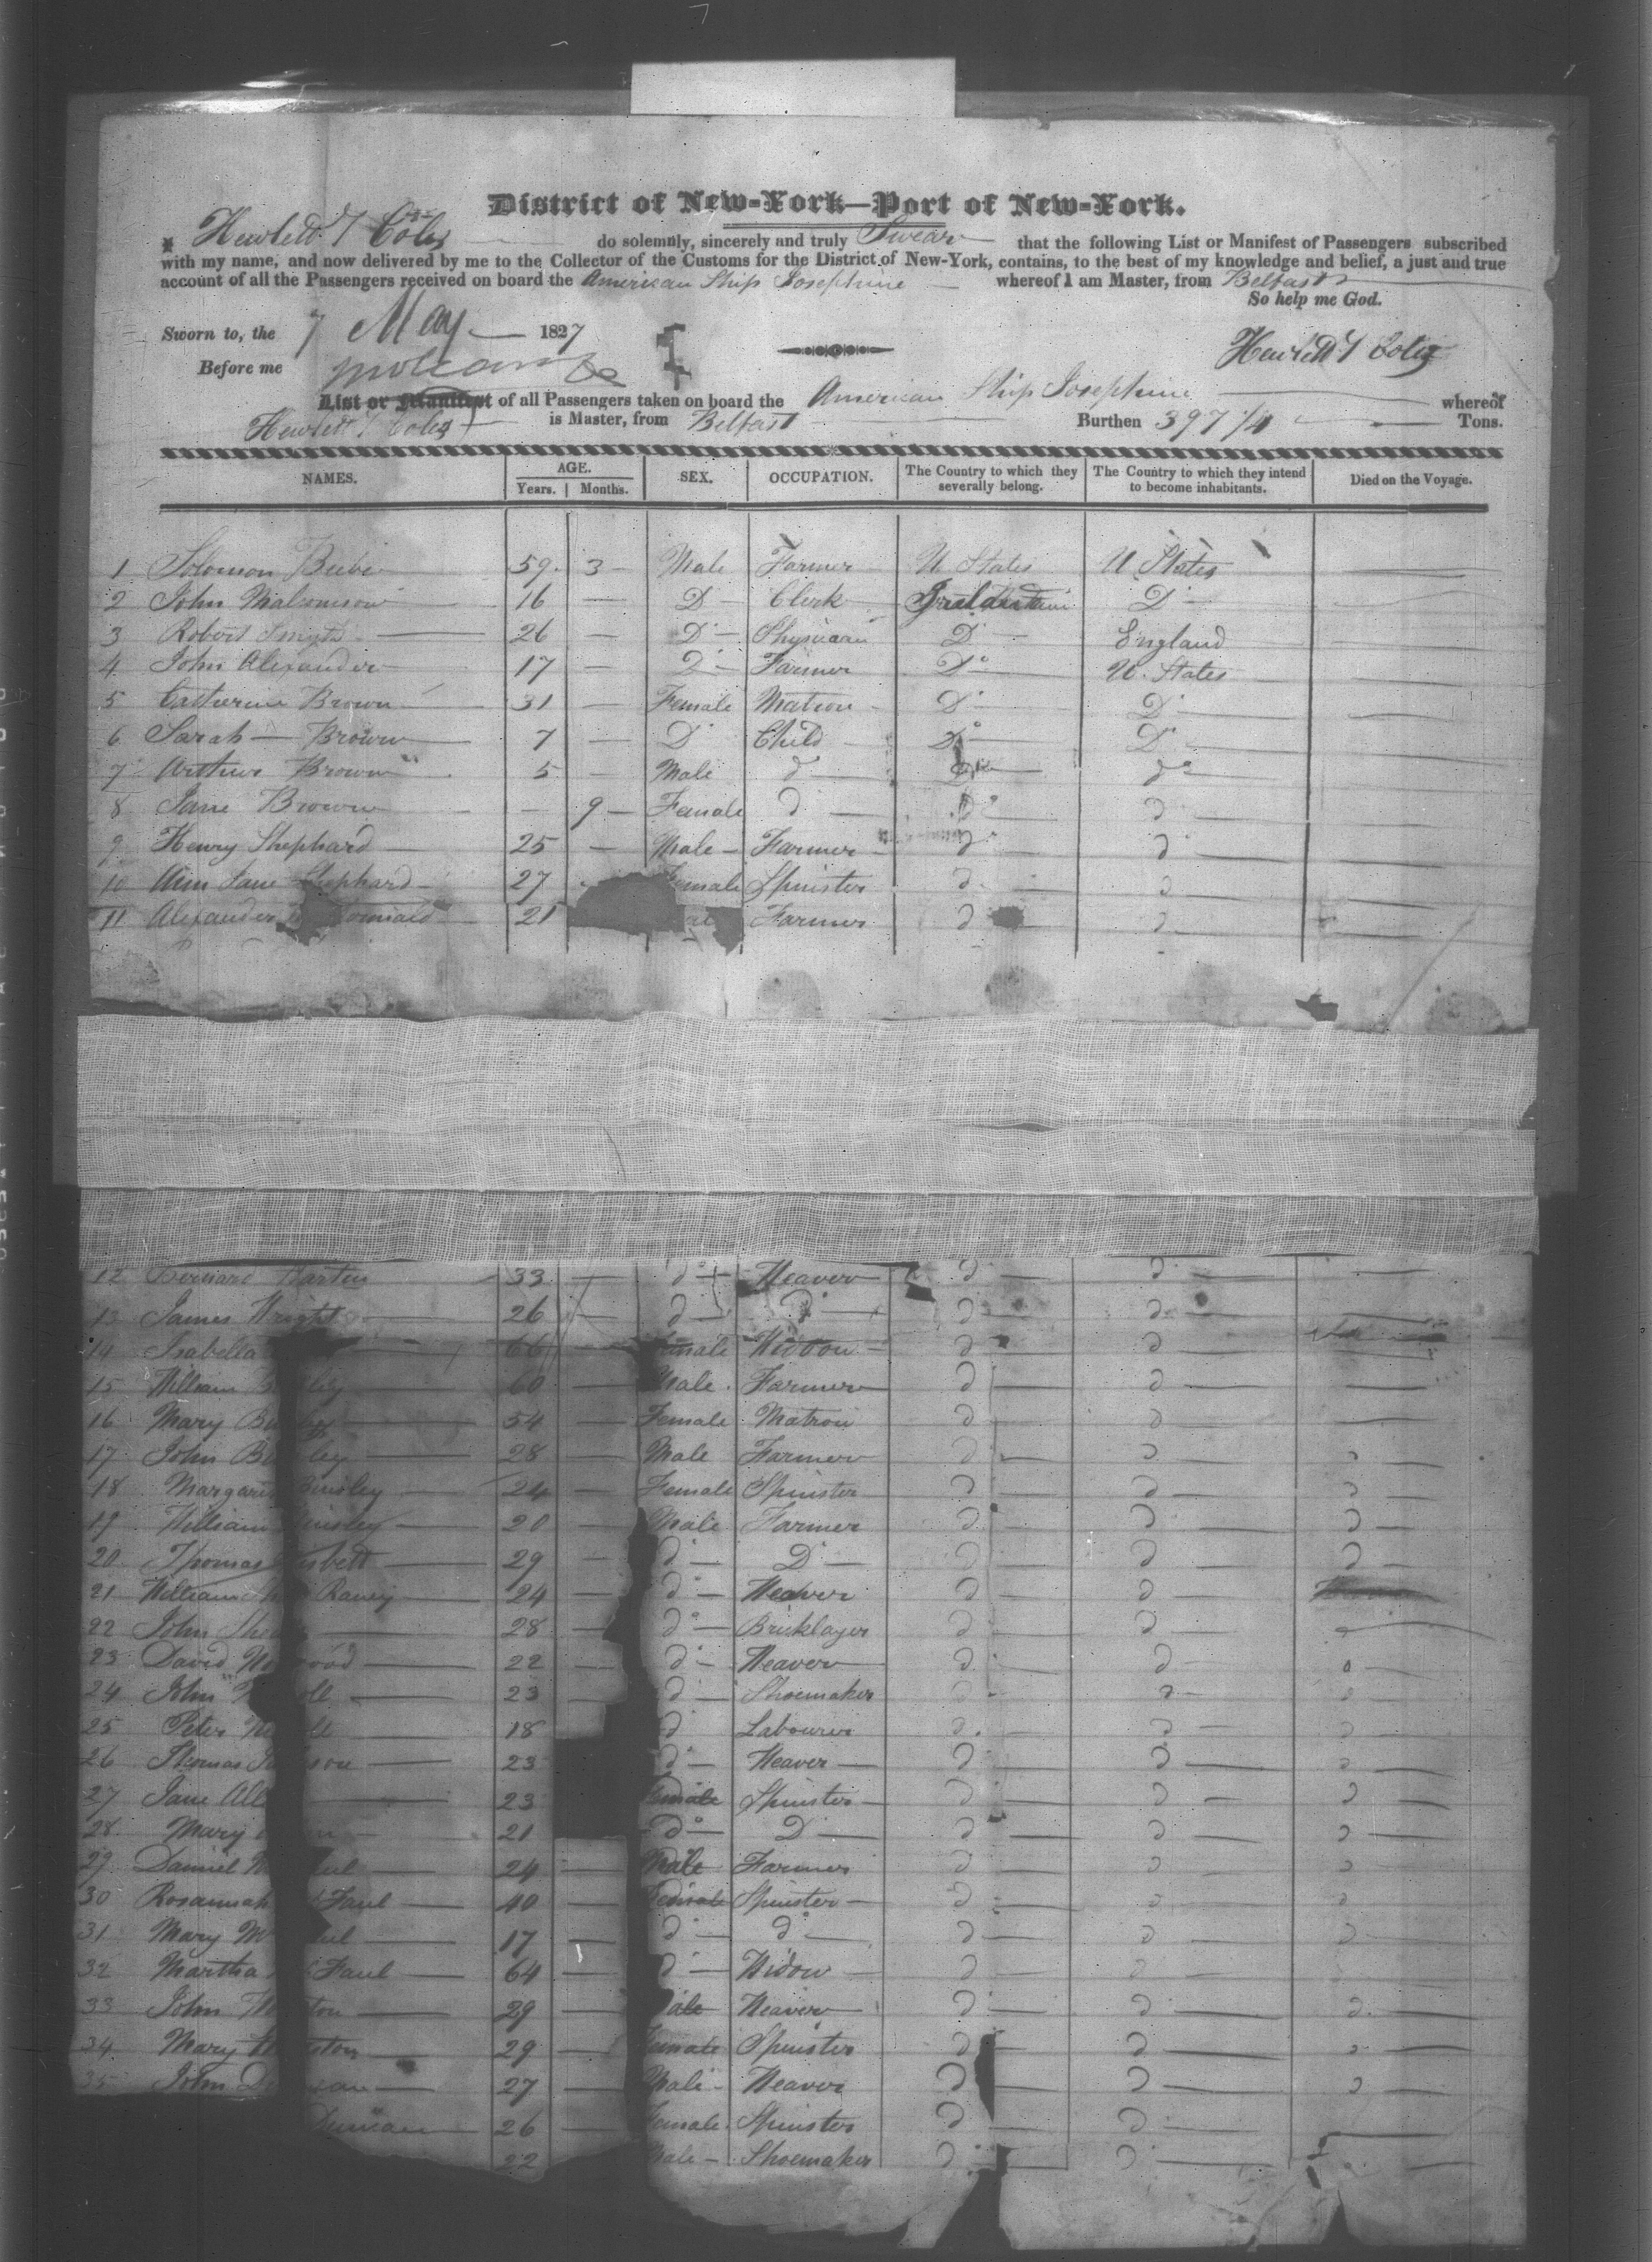 District of New-York—Port of New-York.
Hewlett T Coles do solemnly, sincerely and truly Swear that the following List or Manifest of Passengers subscribed
with my name, and now delivered by me to the Collector of the Customs for the District of New-York, contains, to the best of my knowledge and belief, a just and true
account of all the Passengers received on board the American Ship Josephine whereof I am Master, from Belfast
So help me God.
Sworn to, the 7 May 1827
Hewlett T Coles
Before me
List or Manifest of all Passengers taken on board the American Ship Josephine whereof
Hewlett T Coles is Master, from Belfast Burthen 397 1/4 Tons.
NAMES. AGE. Years. Months. SEX. OCCUPATION. The Country to which they severally belong. The Country to which they intend to become inhabitants. Died on the Voyage.
1 Solomon Beebe 59 3 Male Farmer U States U States
2 John Malcomson 16 — Do Clerk Great Britain Do
3 Robert Smyth 26 — Do Physician Do England
4 John Alexander 17 — Do Farmer Do U. States
5 Catherine Brown 31 — Female Matron Do Do
6 Sarah Brown 7 — Do Child Do Do
7 Arthur Brown 5 — Male do Do do
8 Jane Brown — 9 Female do do do
9 Henry Shephard 25 — Male Farmer do do
10 Ann Jane Shephard 27 Female Spinster do do
11 Alexander 21 Farmer do do
12 Bernard Martin 33 — do Weaver do do
13 James Wright 26 — do do do do
14 Isabella 66 — Female Widow do do
15 William 60 — Male Farmer do do
16 Mary 54 — Female Matron do do
17 John 28 — Male Farmer do do
18 Margaret 24 — Female Spinster do do
19 William 20 — Male Farmer do do
20 Thomas 29 — do Do do do
21 William Raney 24 — do Weaver do do
22 John 28 — do Bricklayer do do
23 David 22 — do Weaver do do
24 John 23 do Shoemaker do do
25 Peter 18 do Labourer do do
26 Thomas 23 do Weaver do do
27 Jane 23 Female Spinster do do
28 Mary 21 do Do do do
29 Daniel 24 — Male Farmer do do
30 Rosannah Faul 40 — Female Spinster do do
31 Mary 17 — do do do do
32 Martha Faul 64 — do Widow do do
33 John 29 — Male Weaver do do
34 Mary 29 — Female Spinster do do
35 John 27 — Male Weaver do do
Duncan 26 — Female Spinster do do
22 Male Shoemaker do do